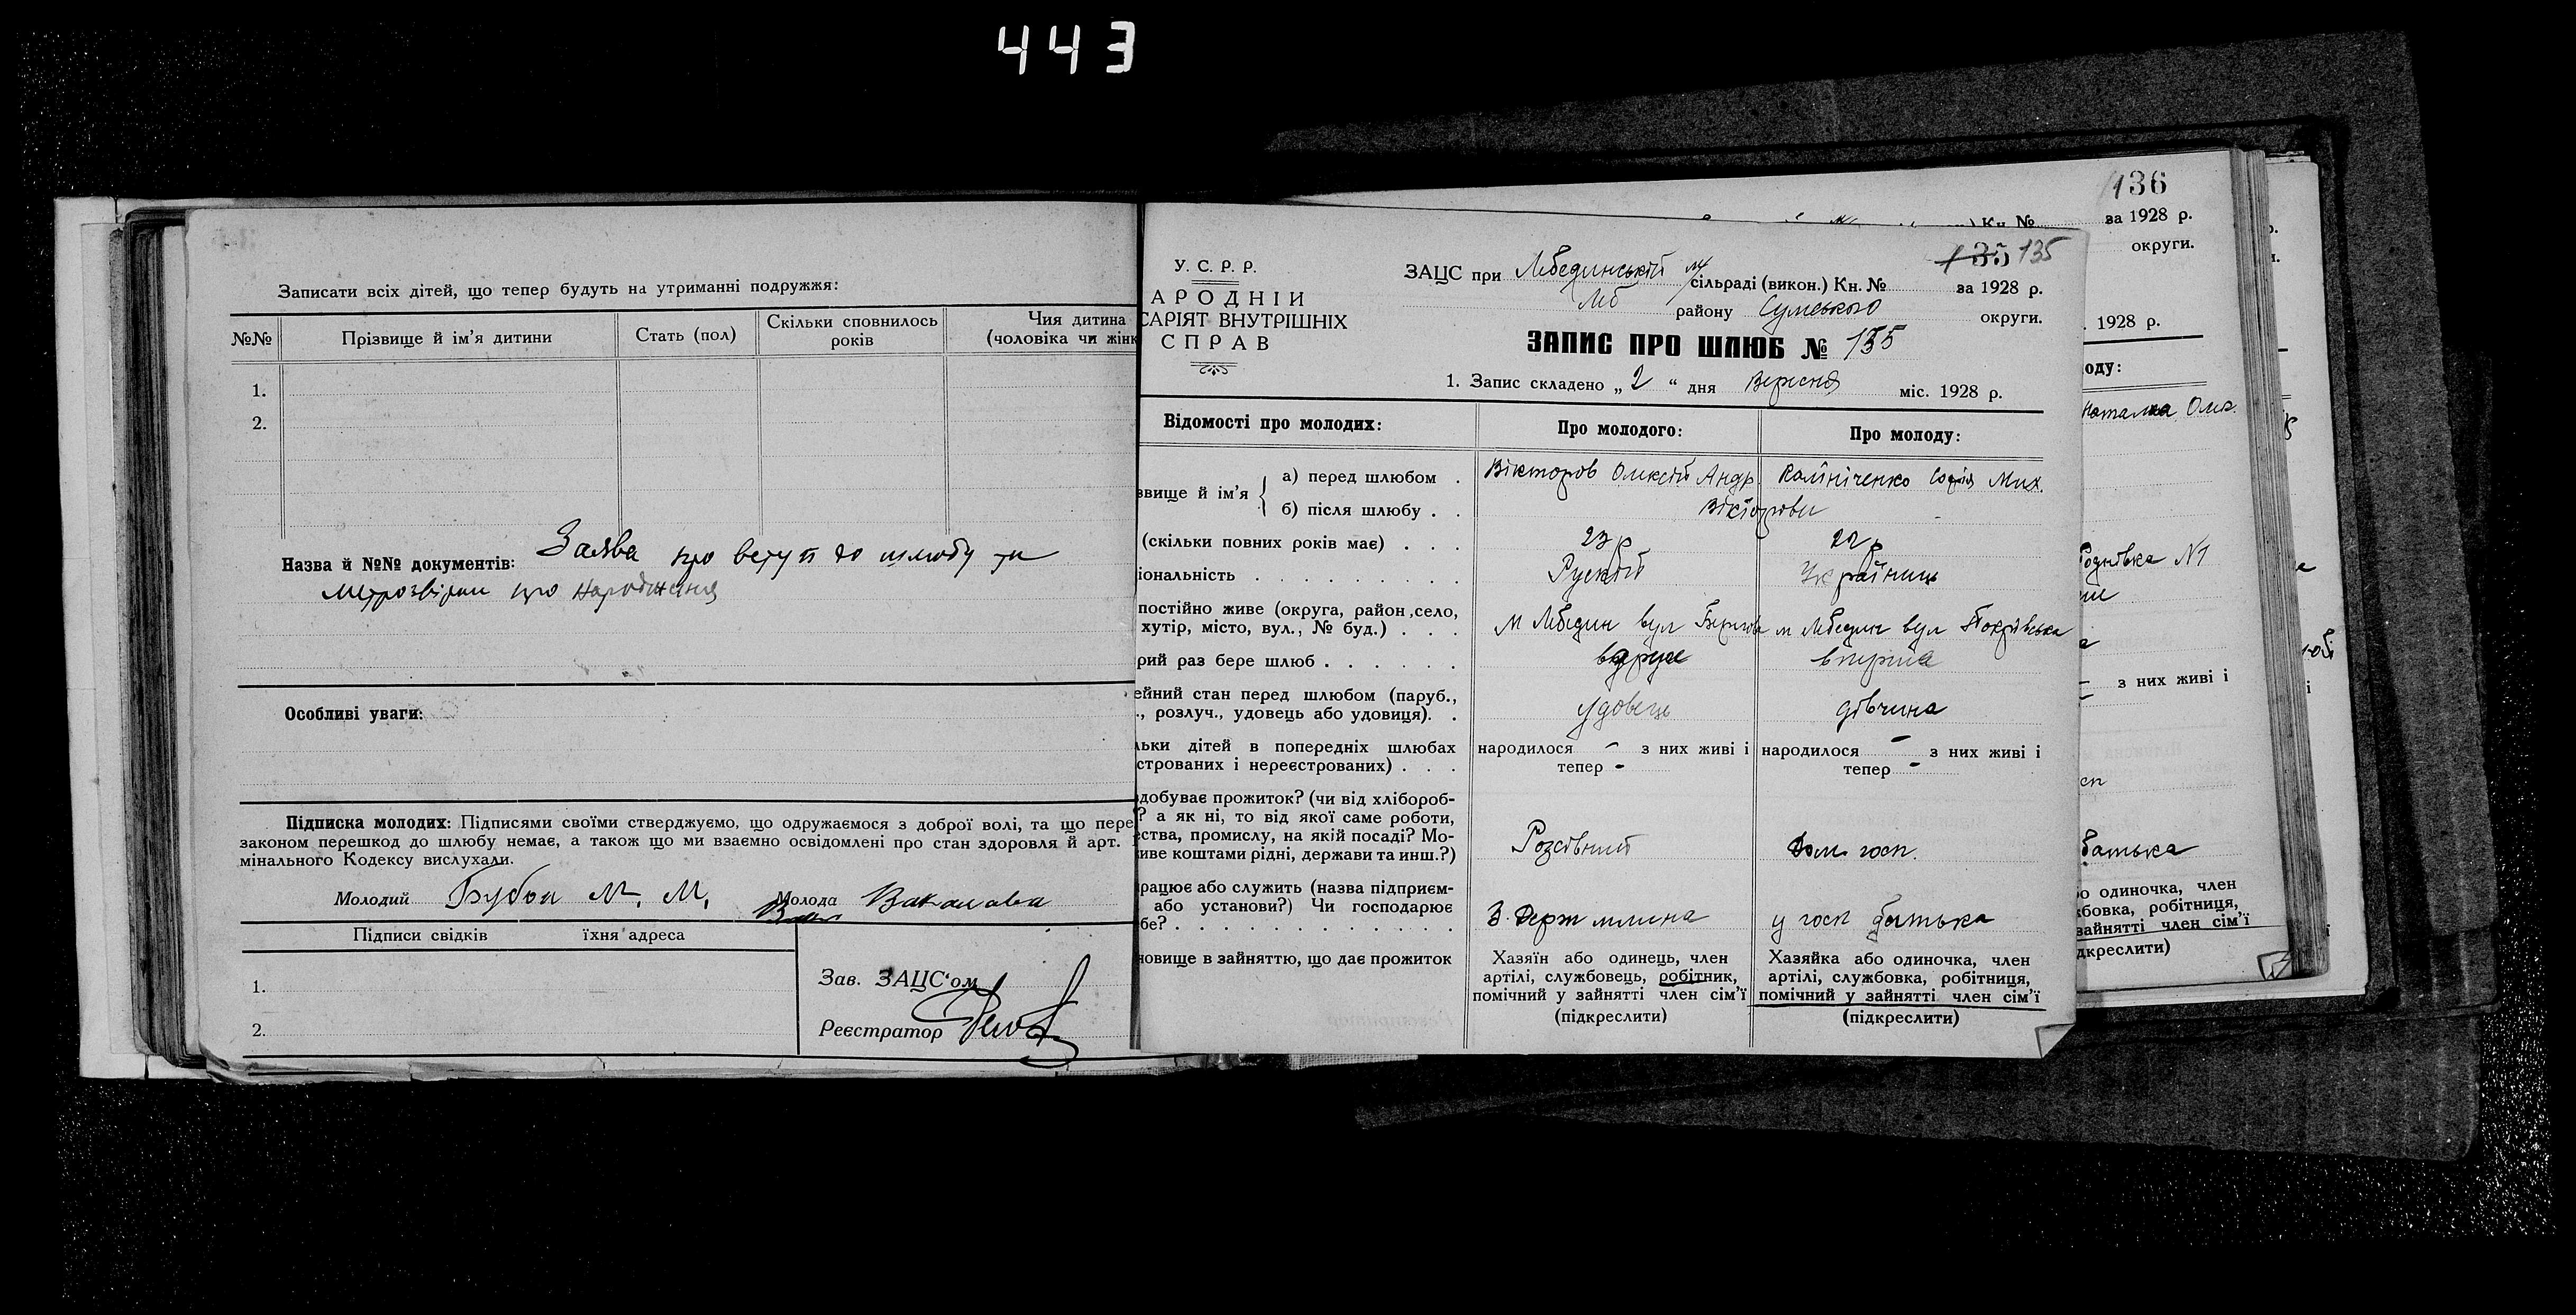 443
Записати всіх дітей, що тепер будуть на утриманні подружжя:
№№ Прізвище й ім'я дитини Стать (пол) Скільки сповнилось років Чия дитина (чоловіка чи жінк
1.
2.
Назва й №№ документів: Заява про вступ до шлюбу та
про народження
Особливі уваги:
Підписка молодих: Підписями своїми стверджуємо, що одружаємося з доброї волі, та що пере
законом перешкод до шлюбу немає, а також що ми взаємно освідомлені про стан здоровля й арт.
мінального Кодексу вислухали.
Молодий М. М. Молода
Підписи свідків їхня адреса
1.
2.
Зав. ЗАЦС'ом
Реєстратор
У. С. Р. Р.
АРОДНІЙ
САРІЯТ ВНУТРІШНІХ
СПРАВ
135 135
ЗАЦС при Лебединській м/сільраді (викон.) Кн. № за 1928 р.
Леб району Сумського округи.
ЗАПИС ПРО ШЛЮБ № 135
1. Запис складено „2“ дня Вересня міс. 1928 р.
Відомості про молодих: Про молодого: Про молоду:
звище й ім'я { а) перед шлюбом . Вікторов Олексій Андр. Калініченко Софія Мих.
б) після шлюбу . . Вікторови
(скільки повних років має) . . . 23 р 22 р
іональність . . . . . . . . . Руский Українець
постійно живе (округа, район, село,
хутір, місто, вул., № буд.) . . . м Лебедин вул м Лебедин вул Покрівська
рий раз бере шлюб . . . . . . вдруге вперше
ейний стан перед шлюбом (паруб.,
., розлуч., удовець або удовиця). . удовець дівчина
льки дітей в попередніх шлюбах народилося - з них живі і народилося - з них живі і
строваних і нереєстрованих) . . . тепер - тепер -
добуває прожиток? (чи від хлібороб-
? а як ні, то від якої саме роботи,
ества, промислу, на якій посаді? Мо-
живе коштами рідні, держави та инш.?) Розсівний дом. госп.
працює або служить (назва підприєм-
або установи?) Чи господарює
бе? . . . . . . . . . . . . 3. Держ млина у госп батька
новище в зайняттю, що дає прожиток Хазяїн або одинець, член Хазяйка або одиночка, член
артілі, службовець, робітник, артілі, службовка, робітниця,
помічний у зайнятті член сім'ї помічний у зайнятті член сім'ї
(підкреслити) (підкреслити)
136
Кн. № за 1928 р.
округи.
. 1928 р.
оду:
Наталка Олек.
№1
з них живі і
батька
бо одиночка, член
жбовка, робітниця,
зайнятті член сім'ї
дкреслити)